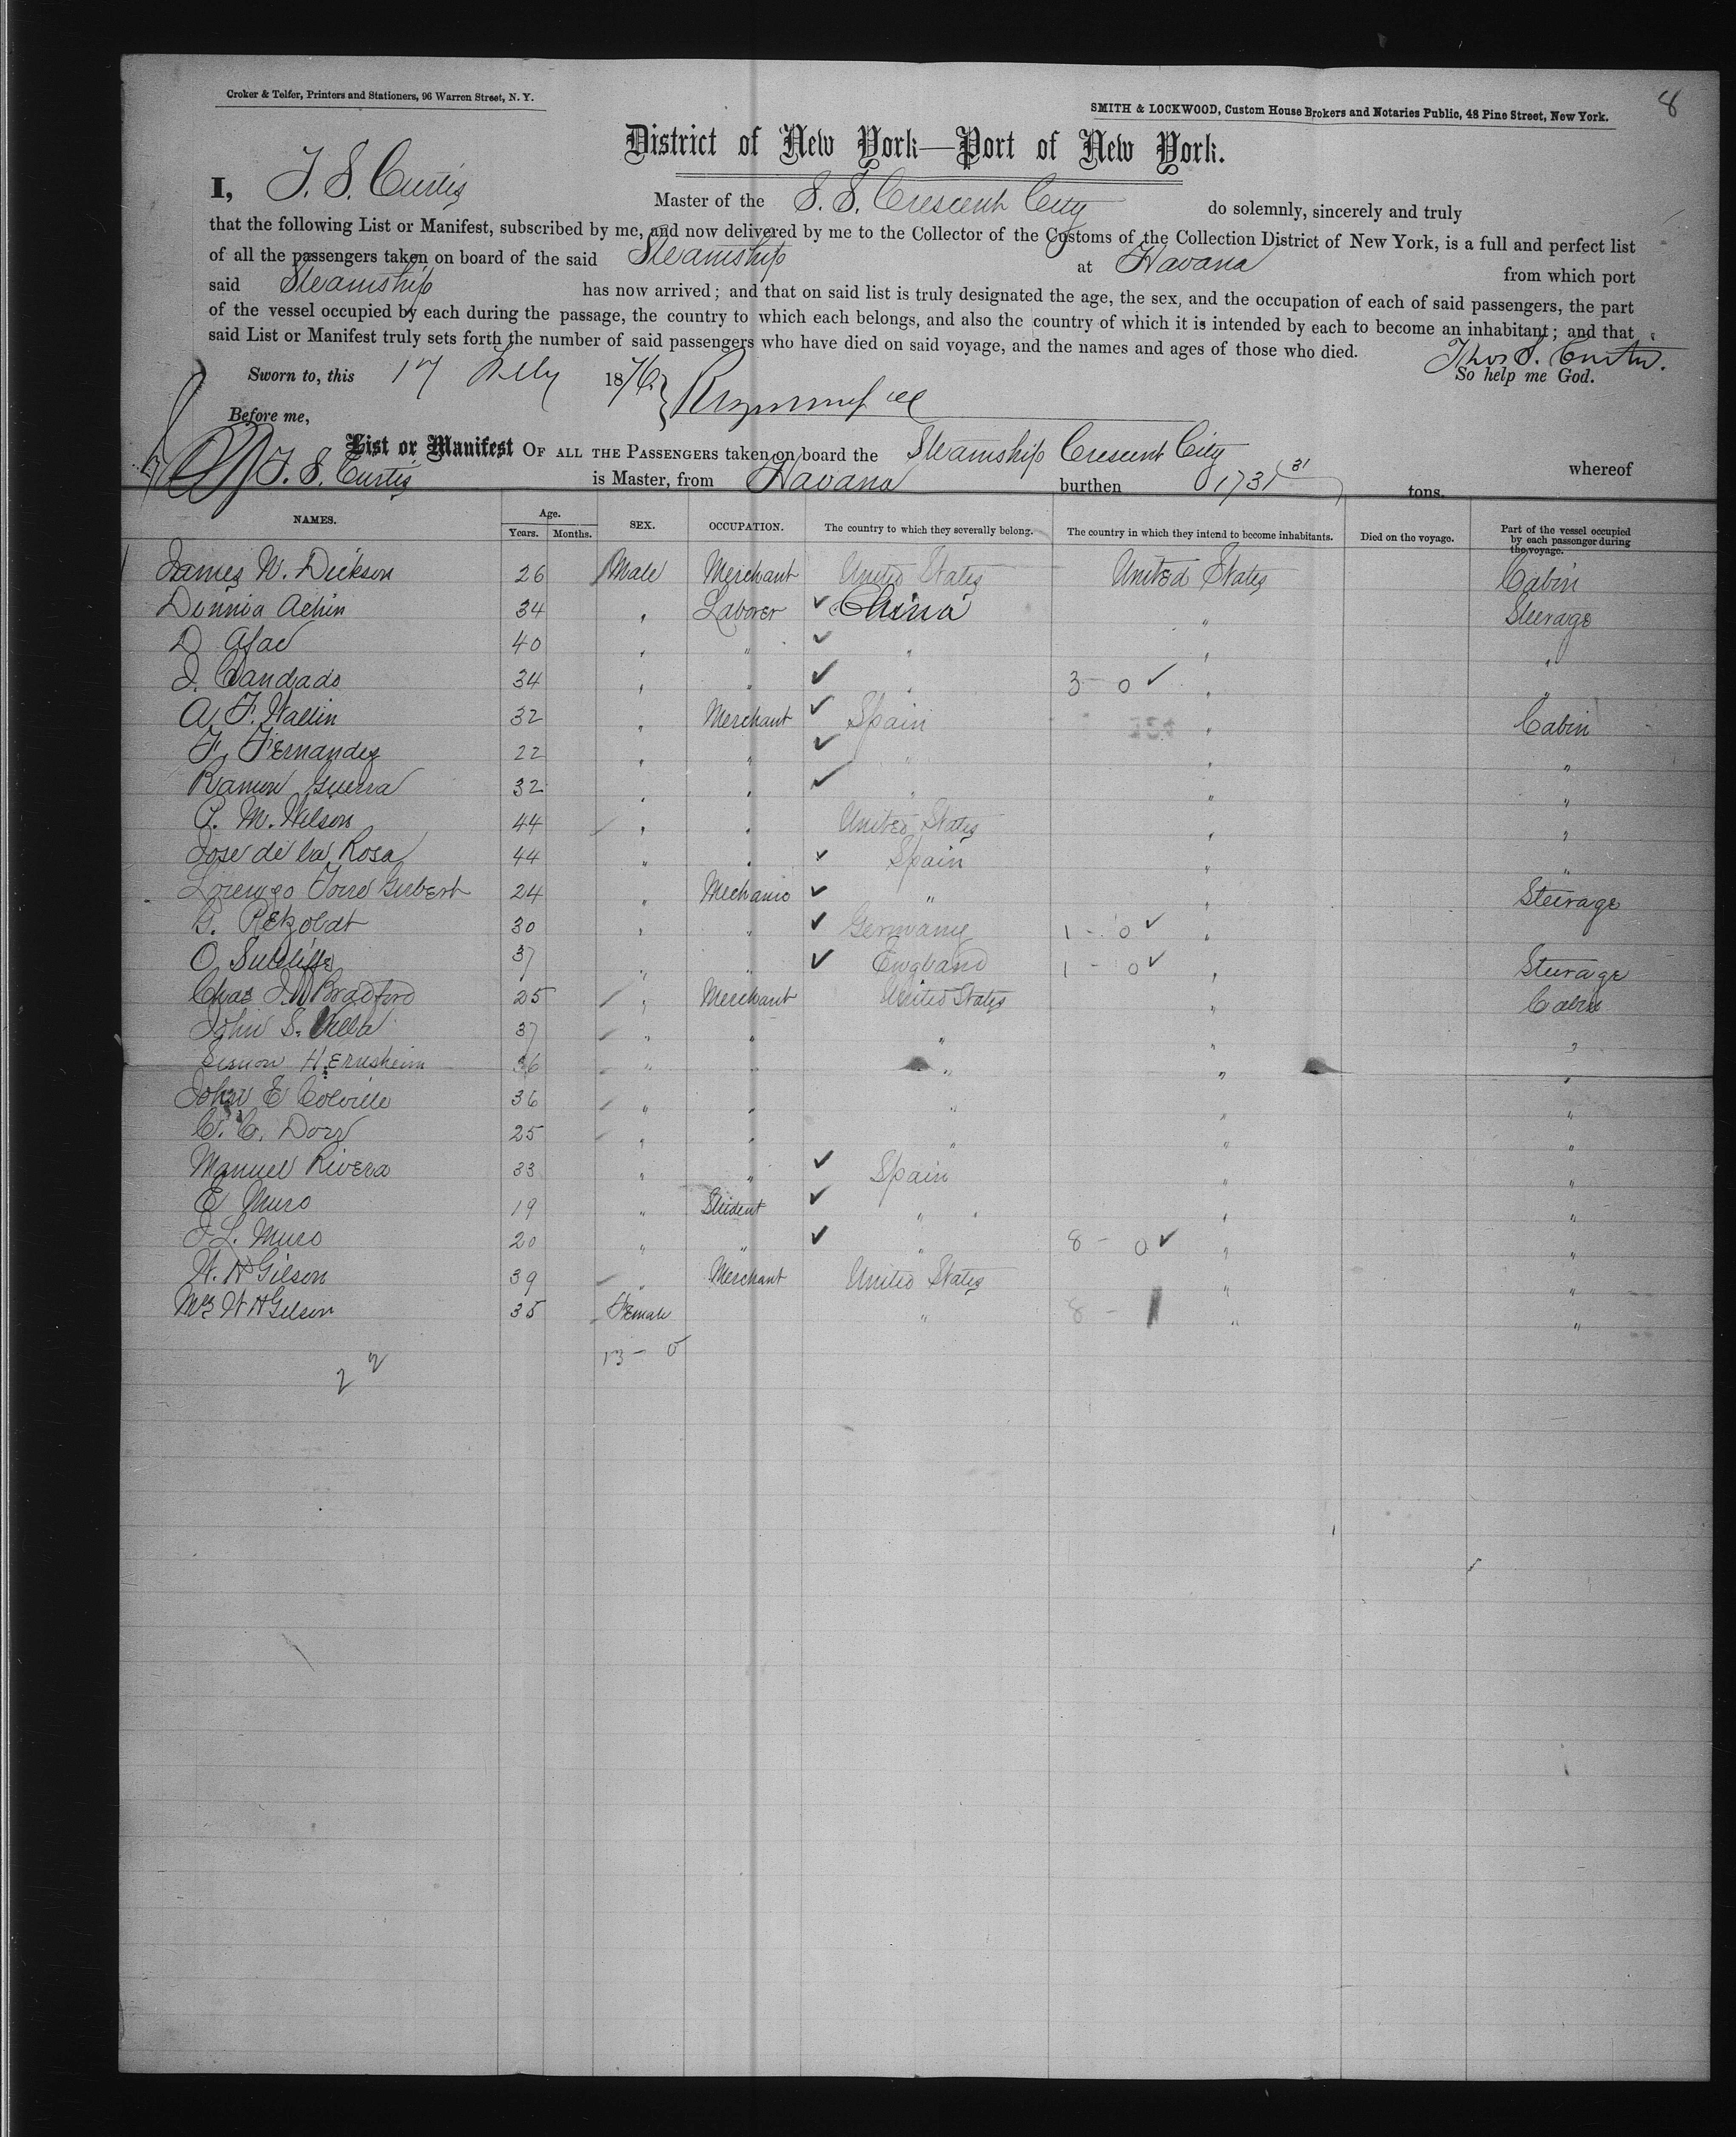 Croker & Telfer, Printers and Stationers, 96 Warren Street, N. Y.
SMITH & LOCKWOOD, Custom House Brokers and Notaries Public, 48 Pine Street, New York.
8
District of New York—Port of New York.
I, T. S. Curtis Master of the S. S. Crescent City do solemnly, sincerely and truly
that the following List or Manifest, subscribed by me, and now delivered by me to the Collector of the Customs of the Collection District of New York, is a full and perfect list
of all the passengers taken on board of the said Steamship at Havana from which port
said Steamship has now arrived; and that on said list is truly designated the age, the sex, and the occupation of each of said passengers, the part
of the vessel occupied by each during the passage, the country to which each belongs, and also the country of which it is intended by each to become an inhabitant; and that
said List or Manifest truly sets forth the number of said passengers who have died on said voyage, and the names and ages of those who died.
Thos S. Curtis.
Sworn to, this 17 1876 So help me God.
Before me,
List or Manifest OF ALL THE PASSENGERS taken on board the Steamship Crescent City whereof
T. S. Curtis is Master, from Havana burthen 1731 31 tons.
NAMES. Age. Years. Months. SEX. OCCUPATION. The country to which they severally belong. The country in which they intend to become inhabitants. Died on the voyage. Part of the vessel occupied by each passenger during the voyage.
James W. Dickson 26 Male Merchant United States United States Cabin
Dennia Achin 34 " Laborer ✓ China " Steerage
D. Afac 40 " " ✓ " " "
J. Candado 34 " " ✓ " 3 - 0 ✓ " "
A. F. Wallin 32 " Merchant ✓ Spain " Cabin
F. Fernandez 22 " " ✓ " " "
Ramon Guerra 32 " " ✓ " " "
P. M. Wilson 44 " " United States " "
Jose de la Rosa 44 " " ✓ Spain " "
Lorenzo Torre Gisbert 24 " Mechanic ✓ " " Steerage
G. Petzoldt 30 " " ✓ Germany 1 - 0 ✓ "
O. Sutcliffe 37 " " ✓ England 1 - 0 ✓ " Steerage
Chas J. W Bradford 25 " Merchant United States " Cabin
John S. Villa 37 " " " " "
Simon Hernsheim 36 " " " " "
John E Colville 36 " " " " "
C. C. Dorr 25 " " " " "
Manuel Rivera 33 " " ✓ Spain " "
E Muro 19 " Student ✓ " " "
J L. Muro 20 " " ✓ " 8 - 0 ✓ " "
W. H Gilson 39 " Merchant United States " "
Mrs W H Gilson 35 Female " 8 - 1 " "
22 13 - 0